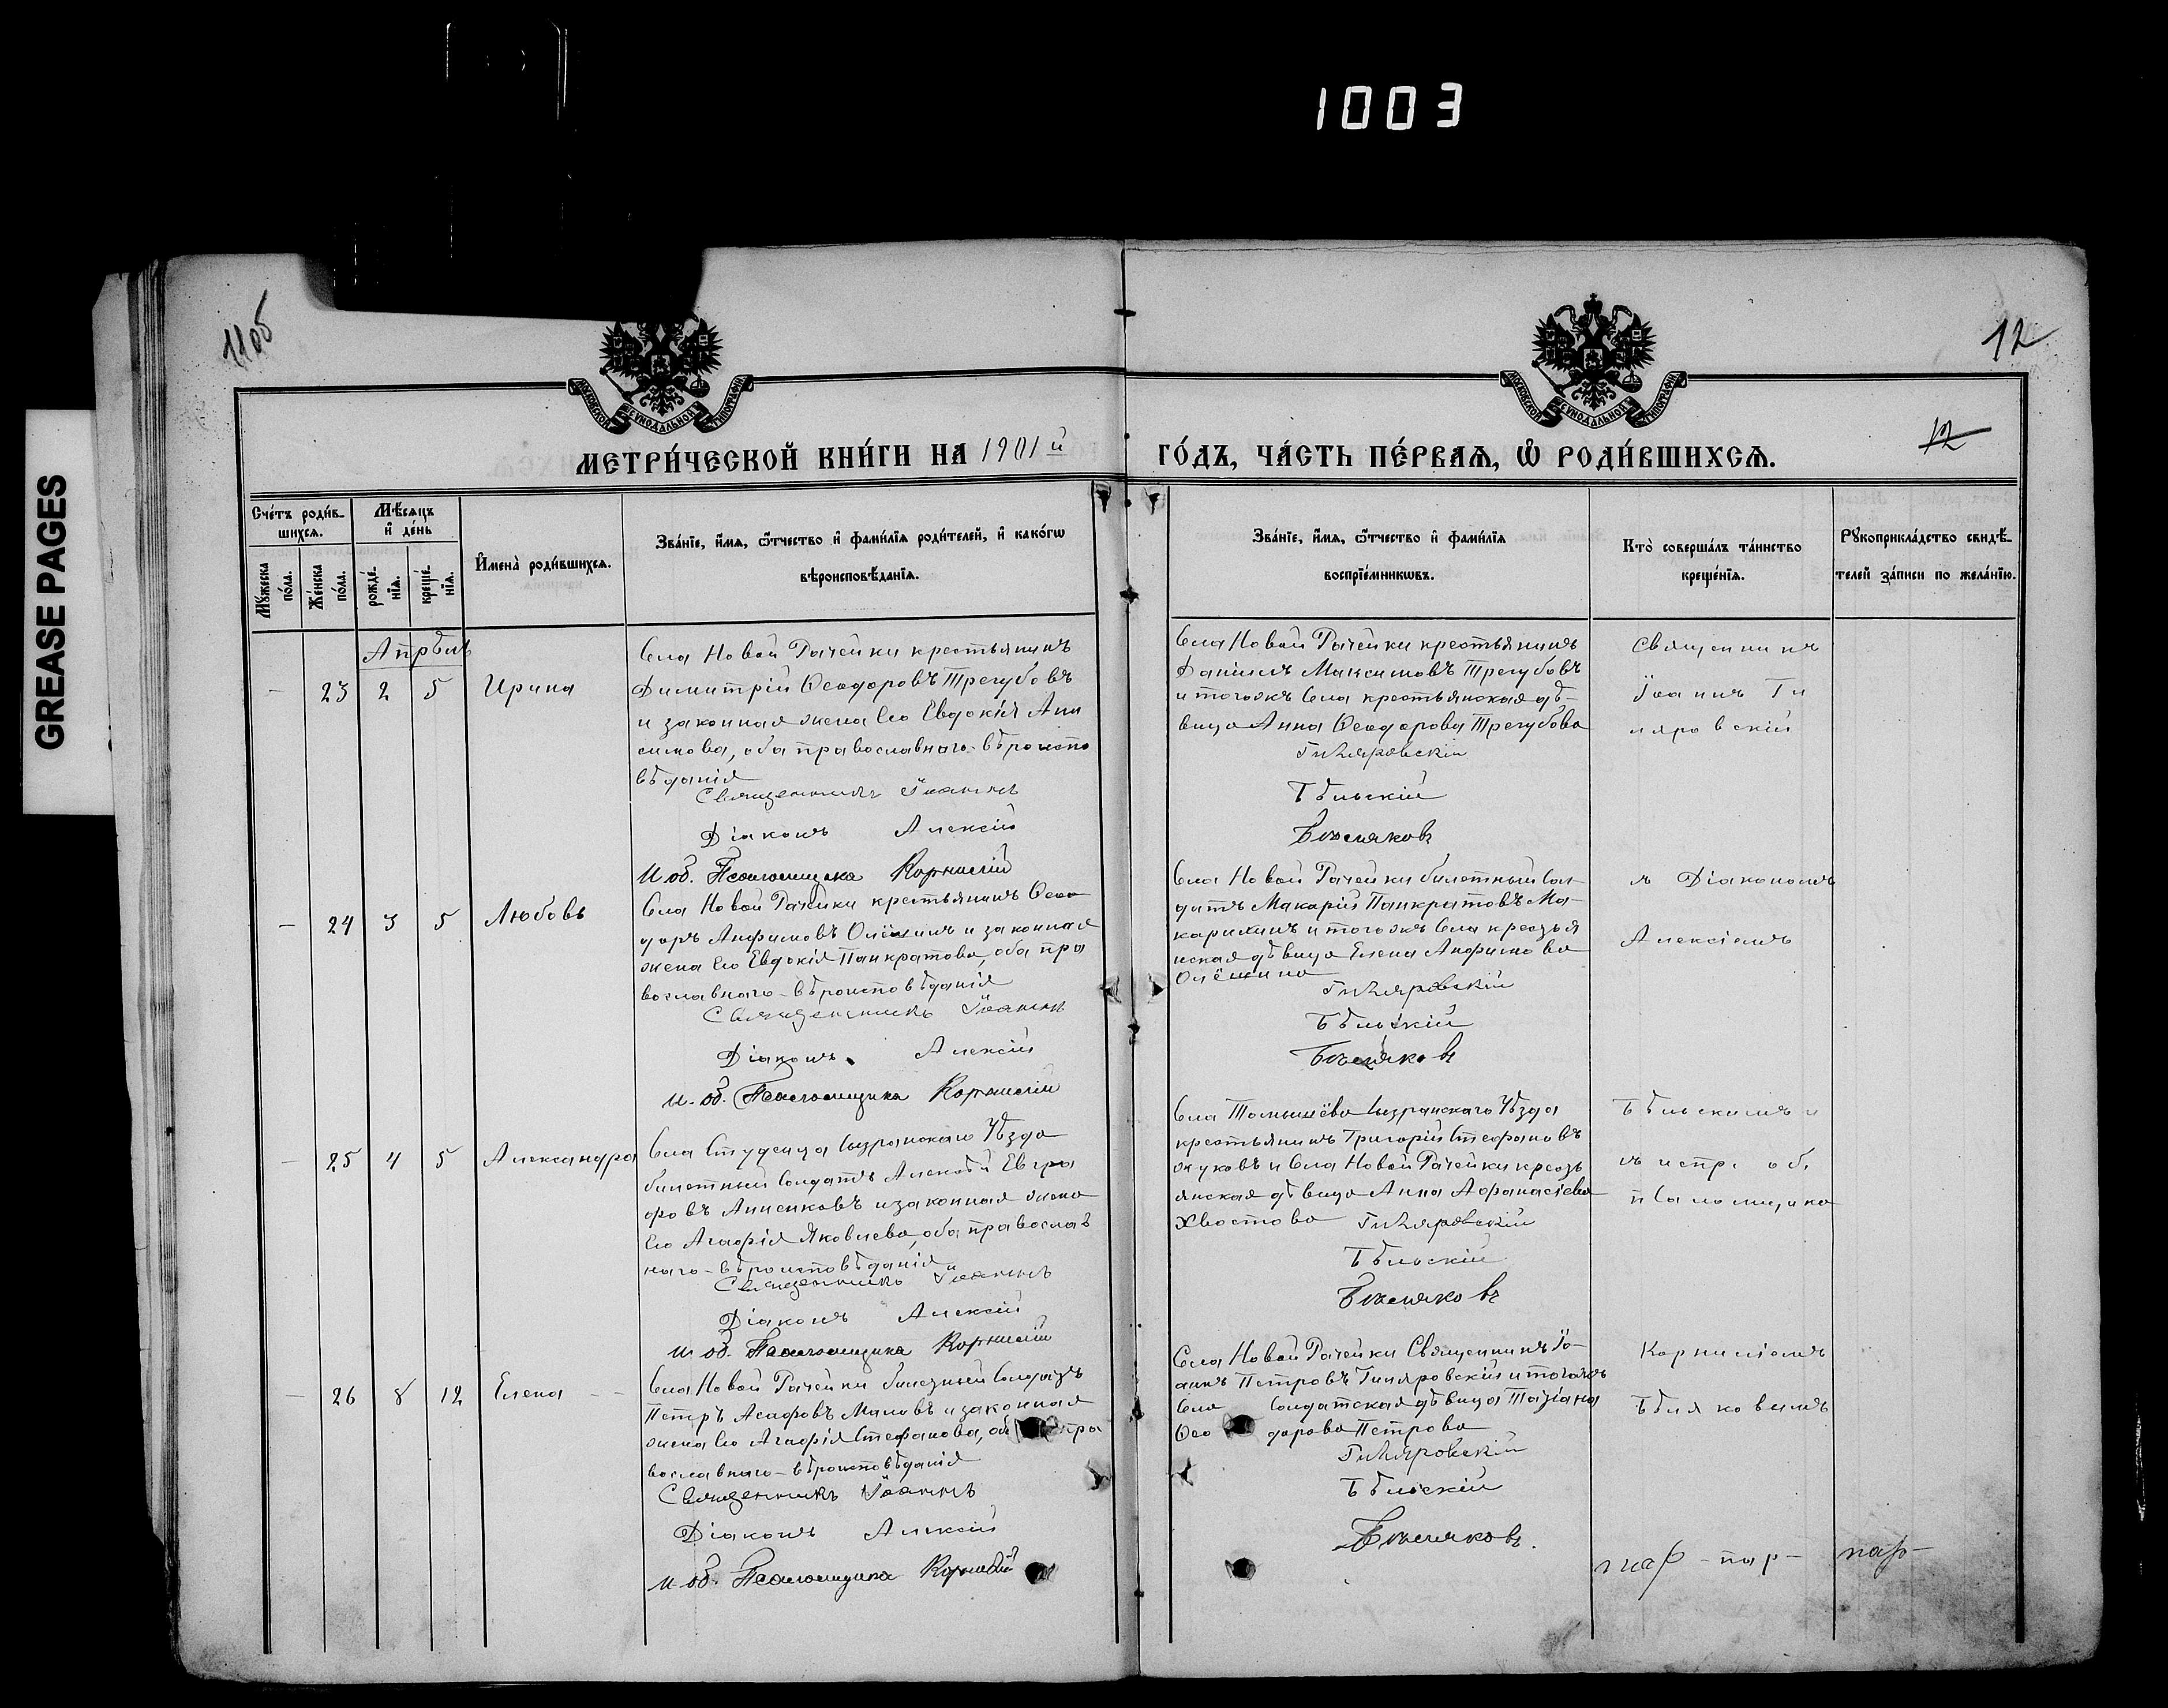 1003
GREASE PAGES
11 об
12
12
МОСКОВСКОЙ СѴНОДАЛЬНОЙ ТИПОГРАФІИ
МОСКОВСКОЙ СѴНОДАЛЬНОЙ ТИПОГРАФІИ
МЕТРИ́ЧЕСКОЙ КНИ́ГИ НА 1901 й
ГО́ДЪ, ЧА́СТЬ ПЕ́РВАѦ, Ѡ РОДИ́ВШИХСѦ.
Сче́тъ роди́в-
шихсѧ.
Мужеска
по́ла.
Же́нска
по́ла.
Мѣсѧцъ
и де́нь
рожде́-
нїѧ.
креще́-
нїѧ.
Имена̀ роди́вшихсѧ.
Зва́нїе, и́мѧ, ѻ́тчество и фами́лїѧ роди́телей, и како́гѡ
вѣроисповѣ́данїѧ.
Зва́нїе, и́мѧ, ѻ́тчество и фами́лїѧ
воспрїе́мникѡвъ.
Кто̀ соверша́лъ та́инство
креще́нїѧ.
Рукоприкла́дство свидѣ́-
телей за́писи по жела́нїю.
Апрѣль
– 23 2 5 Ирина
Села Новой Рачейки крестьянинъ
Димитрій Ѳеодоровъ Трегубовъ
и законная жена его Евдокія Ани
симова, оба православнаго вѣроиспо
вѣданія
Священникъ Іоаннъ
Діаконъ Алексій
И. об. Псаломщика Корнилій
Села Новой Рачейки крестьянинъ
Даніилъ Максимовъ Трегубовъ
и тогожъ села крестьянская дѣ-
вица Анна Ѳеодорова Трегубова
Гиляровскій
Бѣльскій
Бѣляковъ
– 24 3 5 Любовь
Села Новой Рачейки крестьянинъ Ѳео
доръ Анфимовъ Олёшинъ и законная
жена его Евдокія Панкратова, оба пра
вославнаго вѣроисповѣданія
Священникъ Іоаннъ
Діаконъ Алексій
И. об. Псаломщика Корнилій
Села Новой Рачейки билетный сол-
датъ Макарій Панкратовъ Ма-
карихинъ и тогожъ села крестья
нская дѣвица Елена Анфимова
Олёшина
Гиляровскій
Бѣльскій
Бѣляковъ
– 25 4 5 Александра
Села Студенца Сызранскаго Уѣзда
билетный солдатъ Алексѣй Евгра
фовъ Анненковъ и законная жена
его Агафія Яковлева, оба православ
наго вѣроисповѣданія
Священникъ Іоаннъ
Діаконъ Алексій
И. об. Псаломщика Корнилій
Села Томышёва Сызранскаго Уѣзда
крестьянинъ Григорій Стефановъ
Жуковъ и села Новой Рачейки кресть
янская дѣвица Анна Афанасіева
Хвостова
Гиляровскій
Бѣльскій
Бѣляковъ
– 26 8 12 Елена – –
Села Новой Рачейки билетный солдатъ
Петръ Асафовъ Маловъ и законная
жена его Агафія Стефанова, оба пра
вославнаго вѣроисповѣданія
Священникъ Іоаннъ
Діаконъ Алексій
И. об. Псаломщика Корнилій
Села Новой Рачейки Священникъ Іо-
аннъ Петровъ Гиляровскій и тогожъ
села солдатская дѣвица Татіана
Ѳеодорова Петрова
Гиляровскій
Бѣльскій
Бѣляковъ.
Священникъ
Іоаннъ Ги
ляровскій
съ Діакономъ
Алексіемъ
Бѣльскимъ и
испр. об.
псаломщика
Корниліемъ
Бѣляковымъ